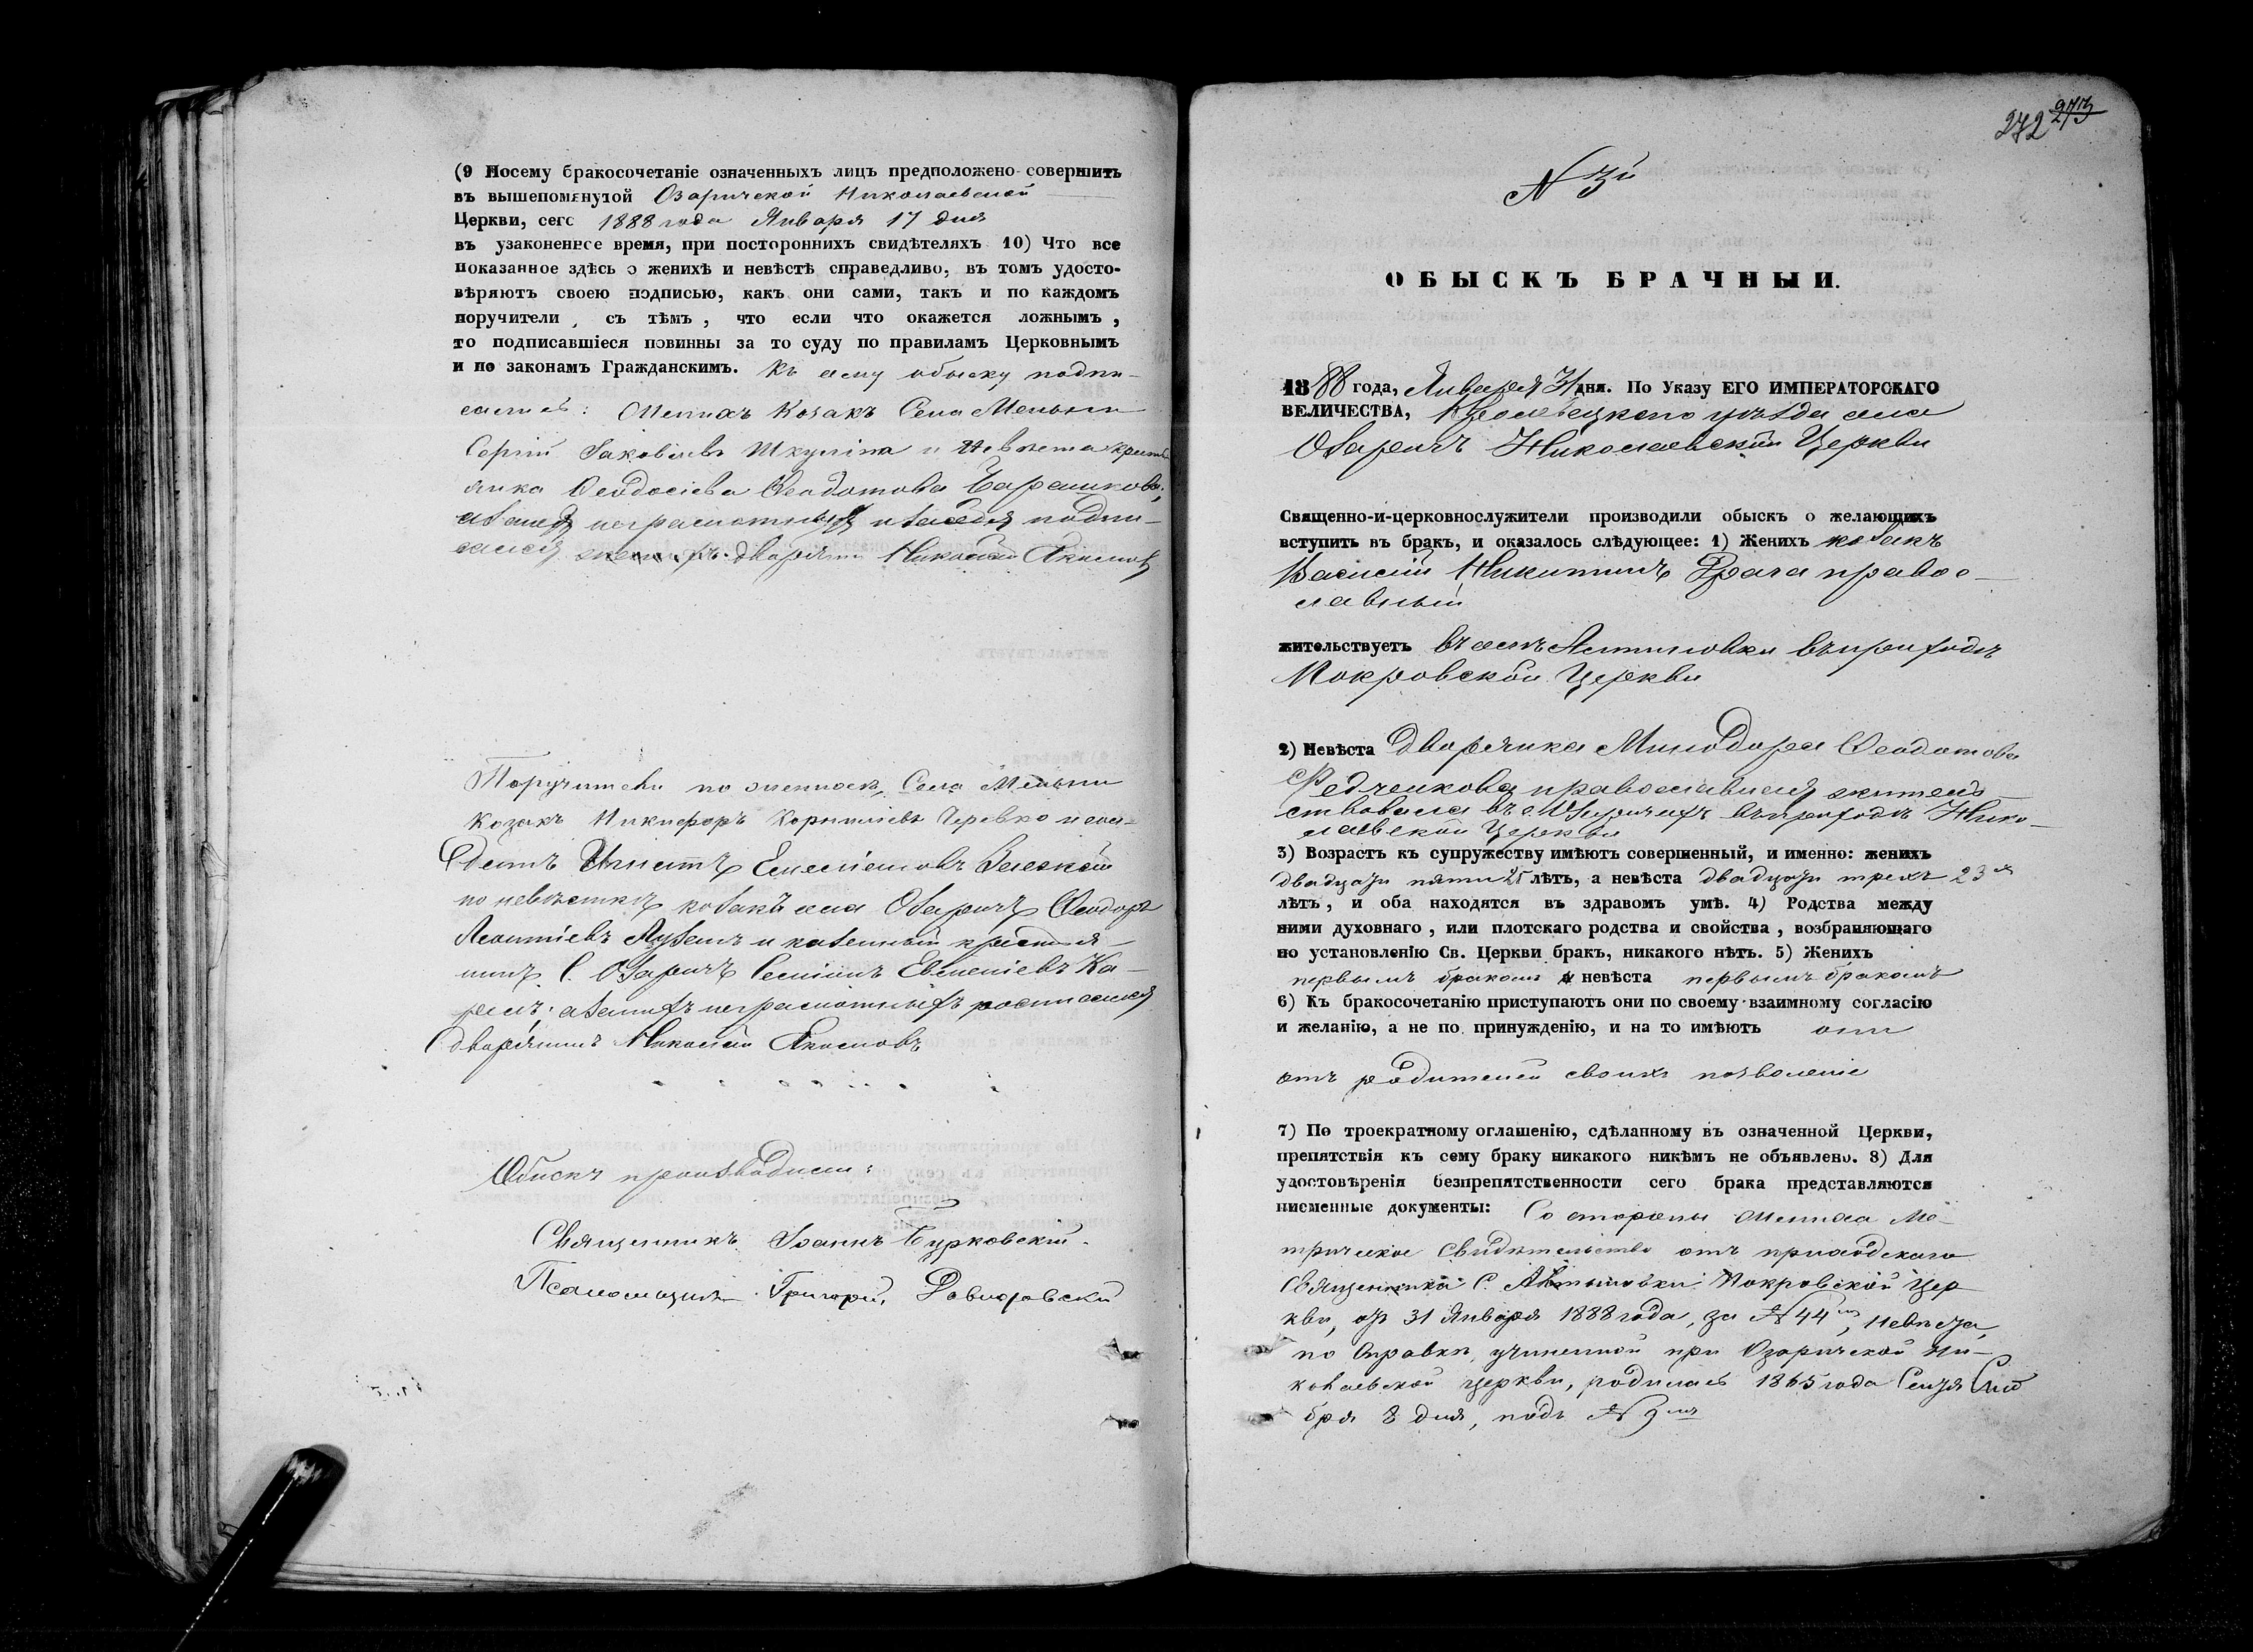 (9 Посему бракосочетаніе означенныхъ лицъ предположено совершить
въ вышепомянутой Озаричской Николаевской
Церкви, сего 1888 года Января 17 дня
въ узаконенное время, при постороннихъ свидѣтеляхъ 10) Что все
показанное здѣсь о женихѣ и невѣстѣ справедливо, въ томъ удосто-
вѣряютъ своею подписью, какъ они сами, такъ и по каждомъ
поручители, съ тѣмъ, что если что окажется ложнымъ,
то подписавшіеся повинны за то суду по правиламъ Церковнымъ
и по законамъ Гражданскимъ. Къ сему обыску подпи-
сались: Женихъ Козакъ Села Меньни
Сергій Іаковлевъ и Невѣста крестъ
янка Ѳеодосіева Ѳеодотова
неграмотныхъ подпи-
сался дворянинъ Николай Акимовъ
Поручители по женихѣ, Села Меньни
Козакъ Никифоръ Корниліевъ Черевко и
по невѣстѣ козакъ села Озаричъ Ѳеодоръ
Леонтіевъ и казенный крестья-
нинъ С. Озаричъ Евменіевъ Ка-
за нихъ неграмотныхъ росписался
дворянинъ Николай Акимовъ
Обыскъ производили:
Священникъ Іоаннъ Бурковскій.
Псаломщикъ Григорій
272 273
N 3й
ОБЫСКЪ БРАЧНЫЙ.
1888 года, Января 31 дня. По Указу ЕГО ИМПЕРАТОРСКАГО
ВЕЛИЧЕСТВА, Кролевецкаго уѣзда села
Озаричъ Николаевской Церкви
Священно-и-церковнослужители производили обыскъ о желающихъ
вступить въ бракъ, и оказалось слѣдующее: 1) Женихъ козакъ
Василій Никитинъ правос-
лавный
жительствуетъ въ селѣ въ приходѣ
Покровской Церкви
2) Невѣста дворянка Минодора Ѳеодотова
Федченкова православная житель-
ствовала въ с. Озаричахъ въ приходѣ Нико-
лаевской Церкви
3) Возрастъ къ супружеству имѣютъ совершенный, и именно: женихъ
двадцати пяти 25 лѣтъ, а невѣста двадцати трехъ 23 х
лѣтъ, и оба находятся въ здравомъ умѣ. 4) Родства между
ними духовнаго, или плотскаго родства и свойства, возбраняющаго
по установленію Св. Церкви бракъ, никакого нѣтъ. 5) Женихъ
первымъ бракомъ а невѣста первымъ бракомъ
6) Къ бракосочетанію приступаютъ они по своему взаимному согласію
и желанію, а не по принужденію, и на то имѣютъ они
отъ родителей своихъ позволеніе
7) По троекратному оглашенію, сдѣланному въ означенной Церкви,
препятствія къ сему браку никакого никѣмъ не объявлено. 8) Для
удостовѣренія безпрепятственности сего брака представляются
писменные документы: Со стороны Жениха Ме-
трическое Свидѣтельство отъ приходскаго
Священника С. Покровской Цер
кви, отъ 31 Января 1888 года, за N 44 м, Невѣста,
по Справкѣ, учиненной при Озаричской Ни-
колаевской церкви, родилась 1865 года Сентя
бря 8 дня, подъ N 9 мъ